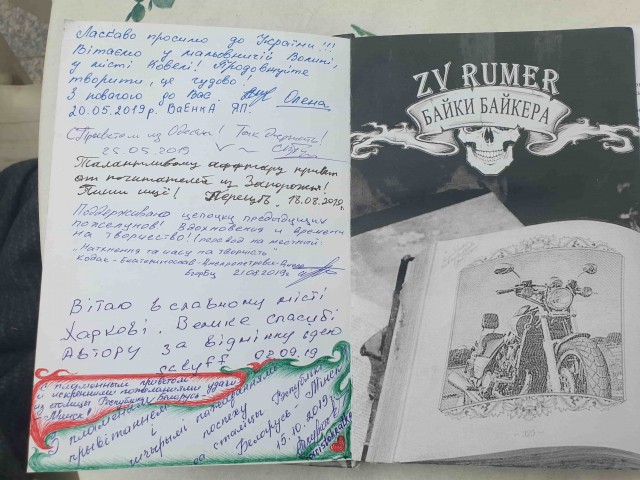 Ласкаво просимо до України!!!
Вітаємо у мальовничій Волині,
у місті Ковелі! Продовжуйте
творити, це чудово!
З повагою до Вас Олена
20.05.2019 р.
Приветом из Одессы! Так держать!
25 05 2019
Талантливому аффтару привет
от почитателей из Запорожья!
Пиши ищё! Перецъ. 18.08.2019г.
Поддерживаю цепочку предыдущих
пожеланий! Вдохновения и времени
на творчество! (перевод на местной:
"Натхнення та часу на творчість"
Кодак-Екатеринослав-Днепропетровск-Днепр
21.08.2019г
Вітаю в славному місті
Харкові. Велике спасибі
Автору за відмінну ідею
02.09.19
С пламенным приветом
и искренними пожеланиями удачи
из столицы Республики Беларусь -
Минск!
З
прывітаннем
і
шчырымі пажаданнямі
поспеху
са сталіцы Рэспублікі
Беларусь - Мінск
15.10.2019г
ZV RUMER
БАЙКИ БАЙКЕРА